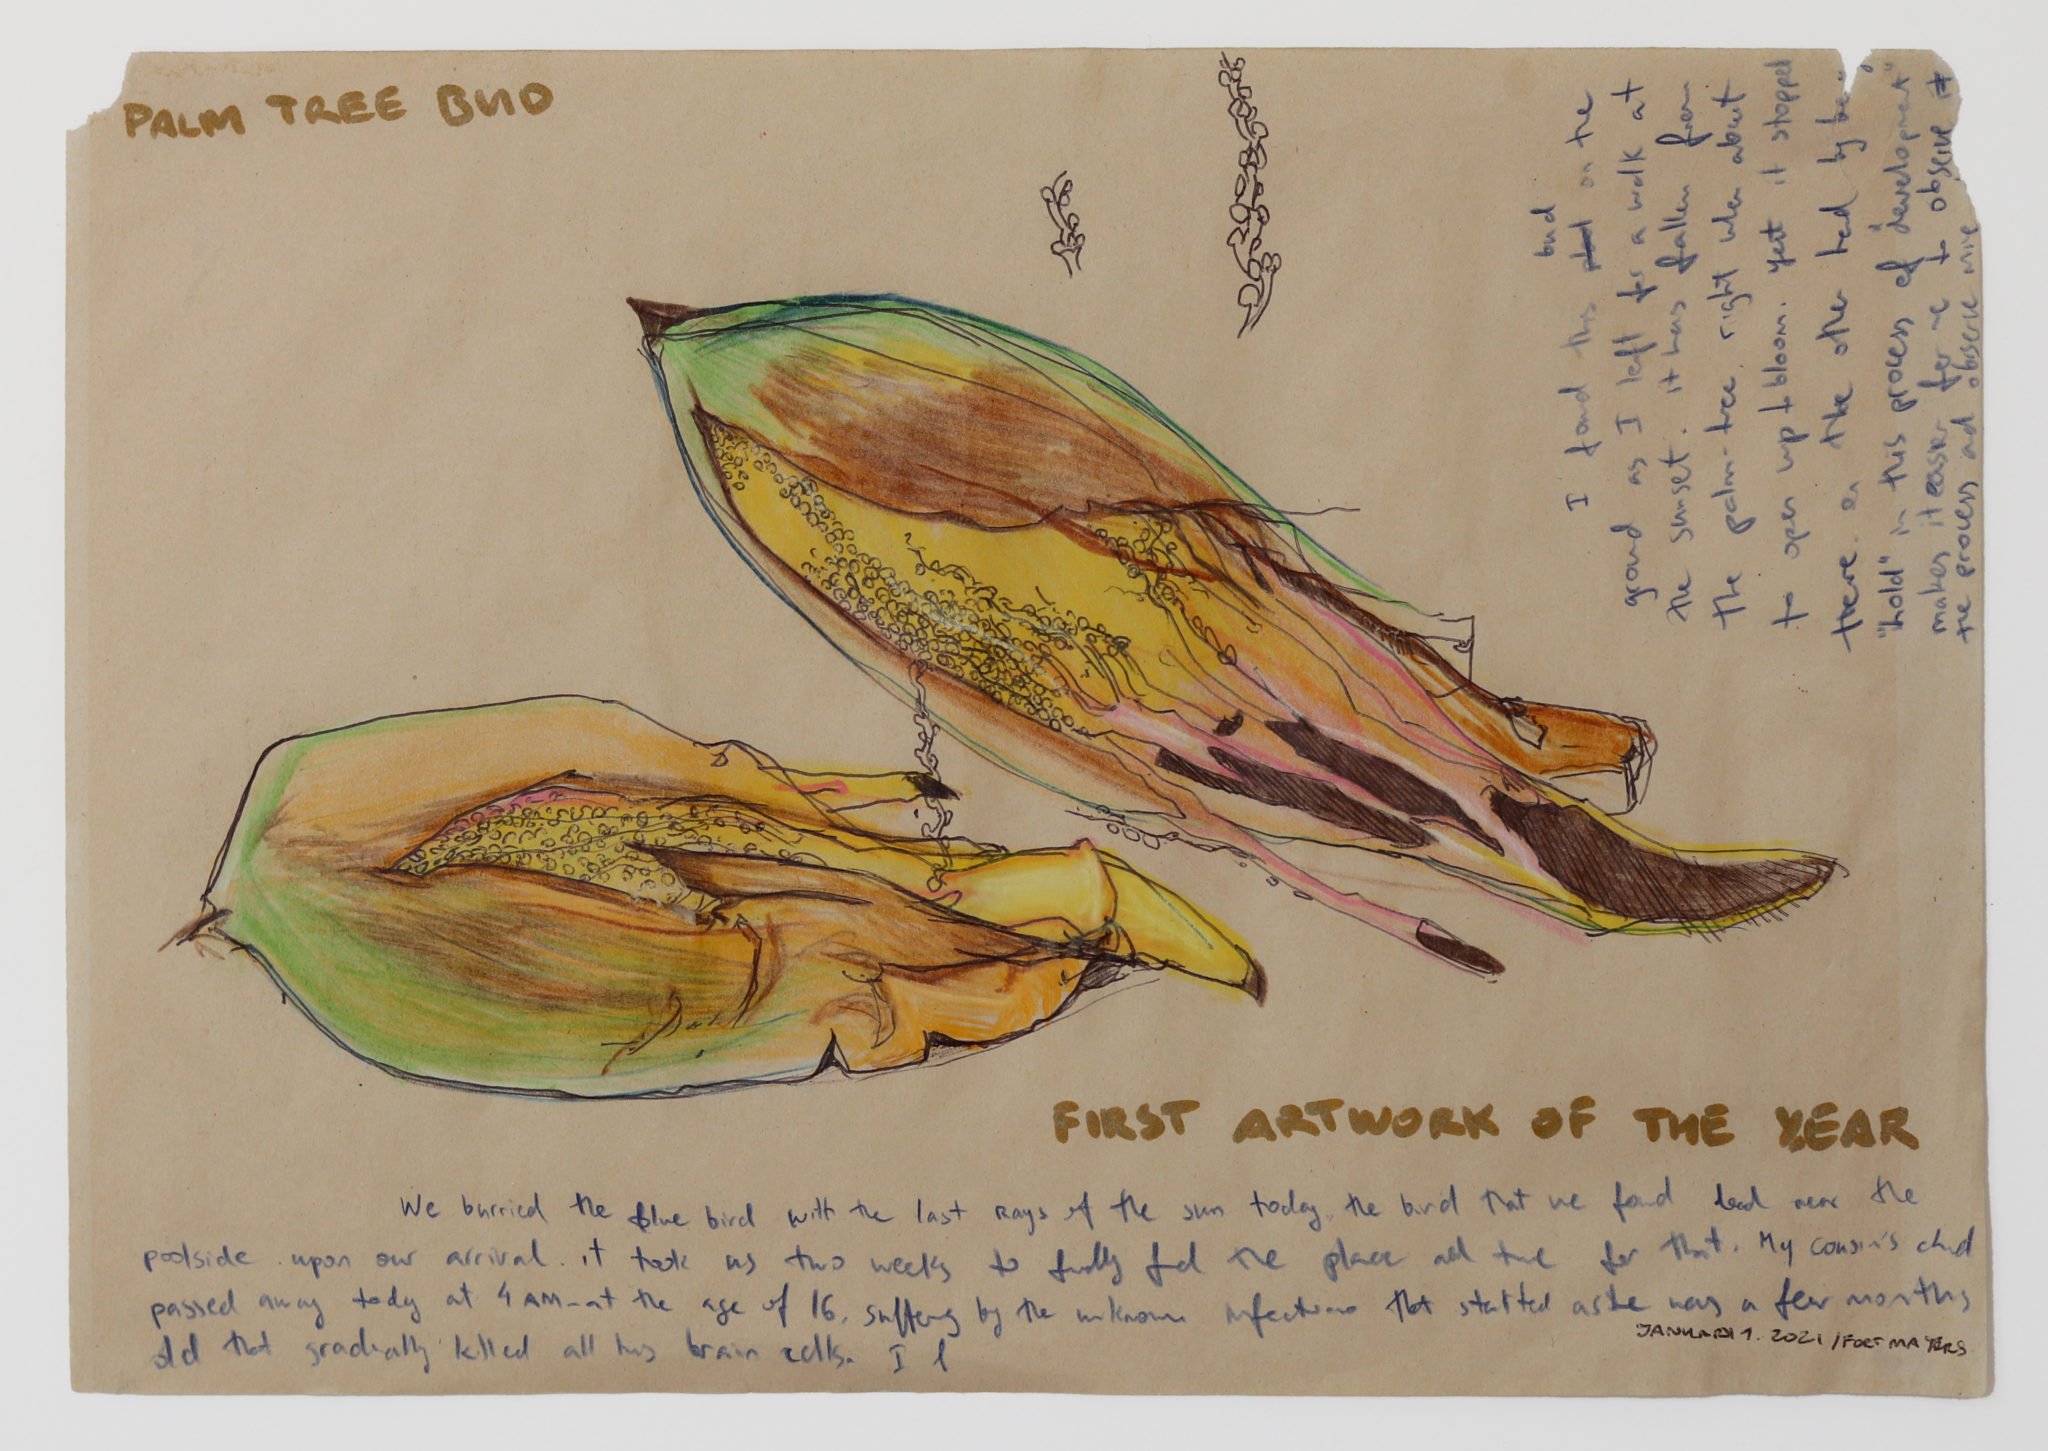 PALM TREE BUD
bud
I found this on the
ground as I left for a walk at
the sunset. it has fallen from
the palm-tree, right when about
to open up + bloom. yett it stopped
there. on the other hand by being
"hold" in this process of "development"
makes it easier for me to observe it
the process and observe mine
FIRST ARTWORK OF THE YEAR
We burried the blue bird with the last rays of the sun today, the bird that we found dead near the
poolside upon our arrival. it took us two weeks to finally find the place and time for that. My cousin's child
passed away today at 4 AM - at the age of 16, suffering by the unknown infections that statted as he was a few months
old that gradually killed all his brain cells. I
JANUARY 1. 2021 / FORT MAYERS